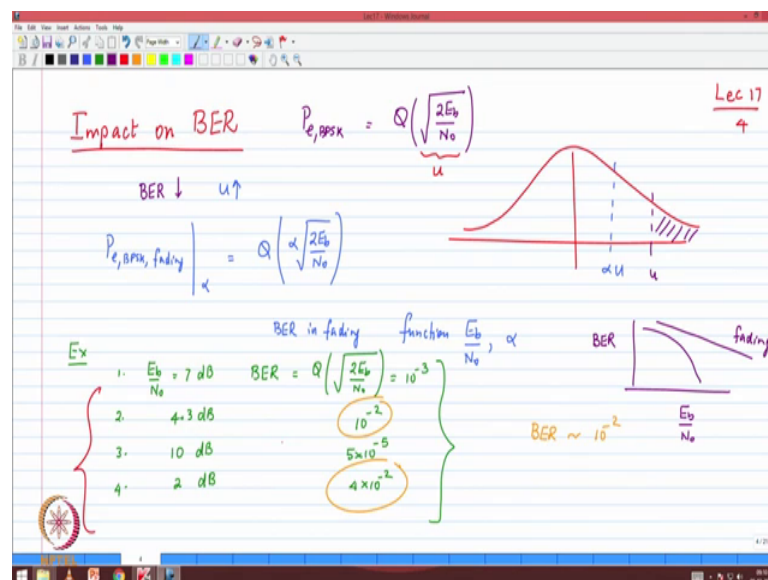 Lec17 - Windows Journal
File Edit View Insert Actions Tools Help
Page Width
B I
Impact on BER
P_{e,BPSK} = Q(√(2E_b/N_0))
u
Lec 17
4
BER ↓ u↑
P_{e,BPSK, fading}|_α = Q(α√(2E_b/N_0))
αu
u
BER in fading function E_b/N_0, α
BER
fading
E_b/N_0
Ex
1. E_b/N_0 = 7 dB BER = Q(√(2E_b/N_0)) = 10^{-3}
2. 4.3 dB 10^{-2}
3. 10 dB 5×10^{-5}
4. 2 dB 4×10^{-2}
BER ~ 10^{-2}
NPTEL
4